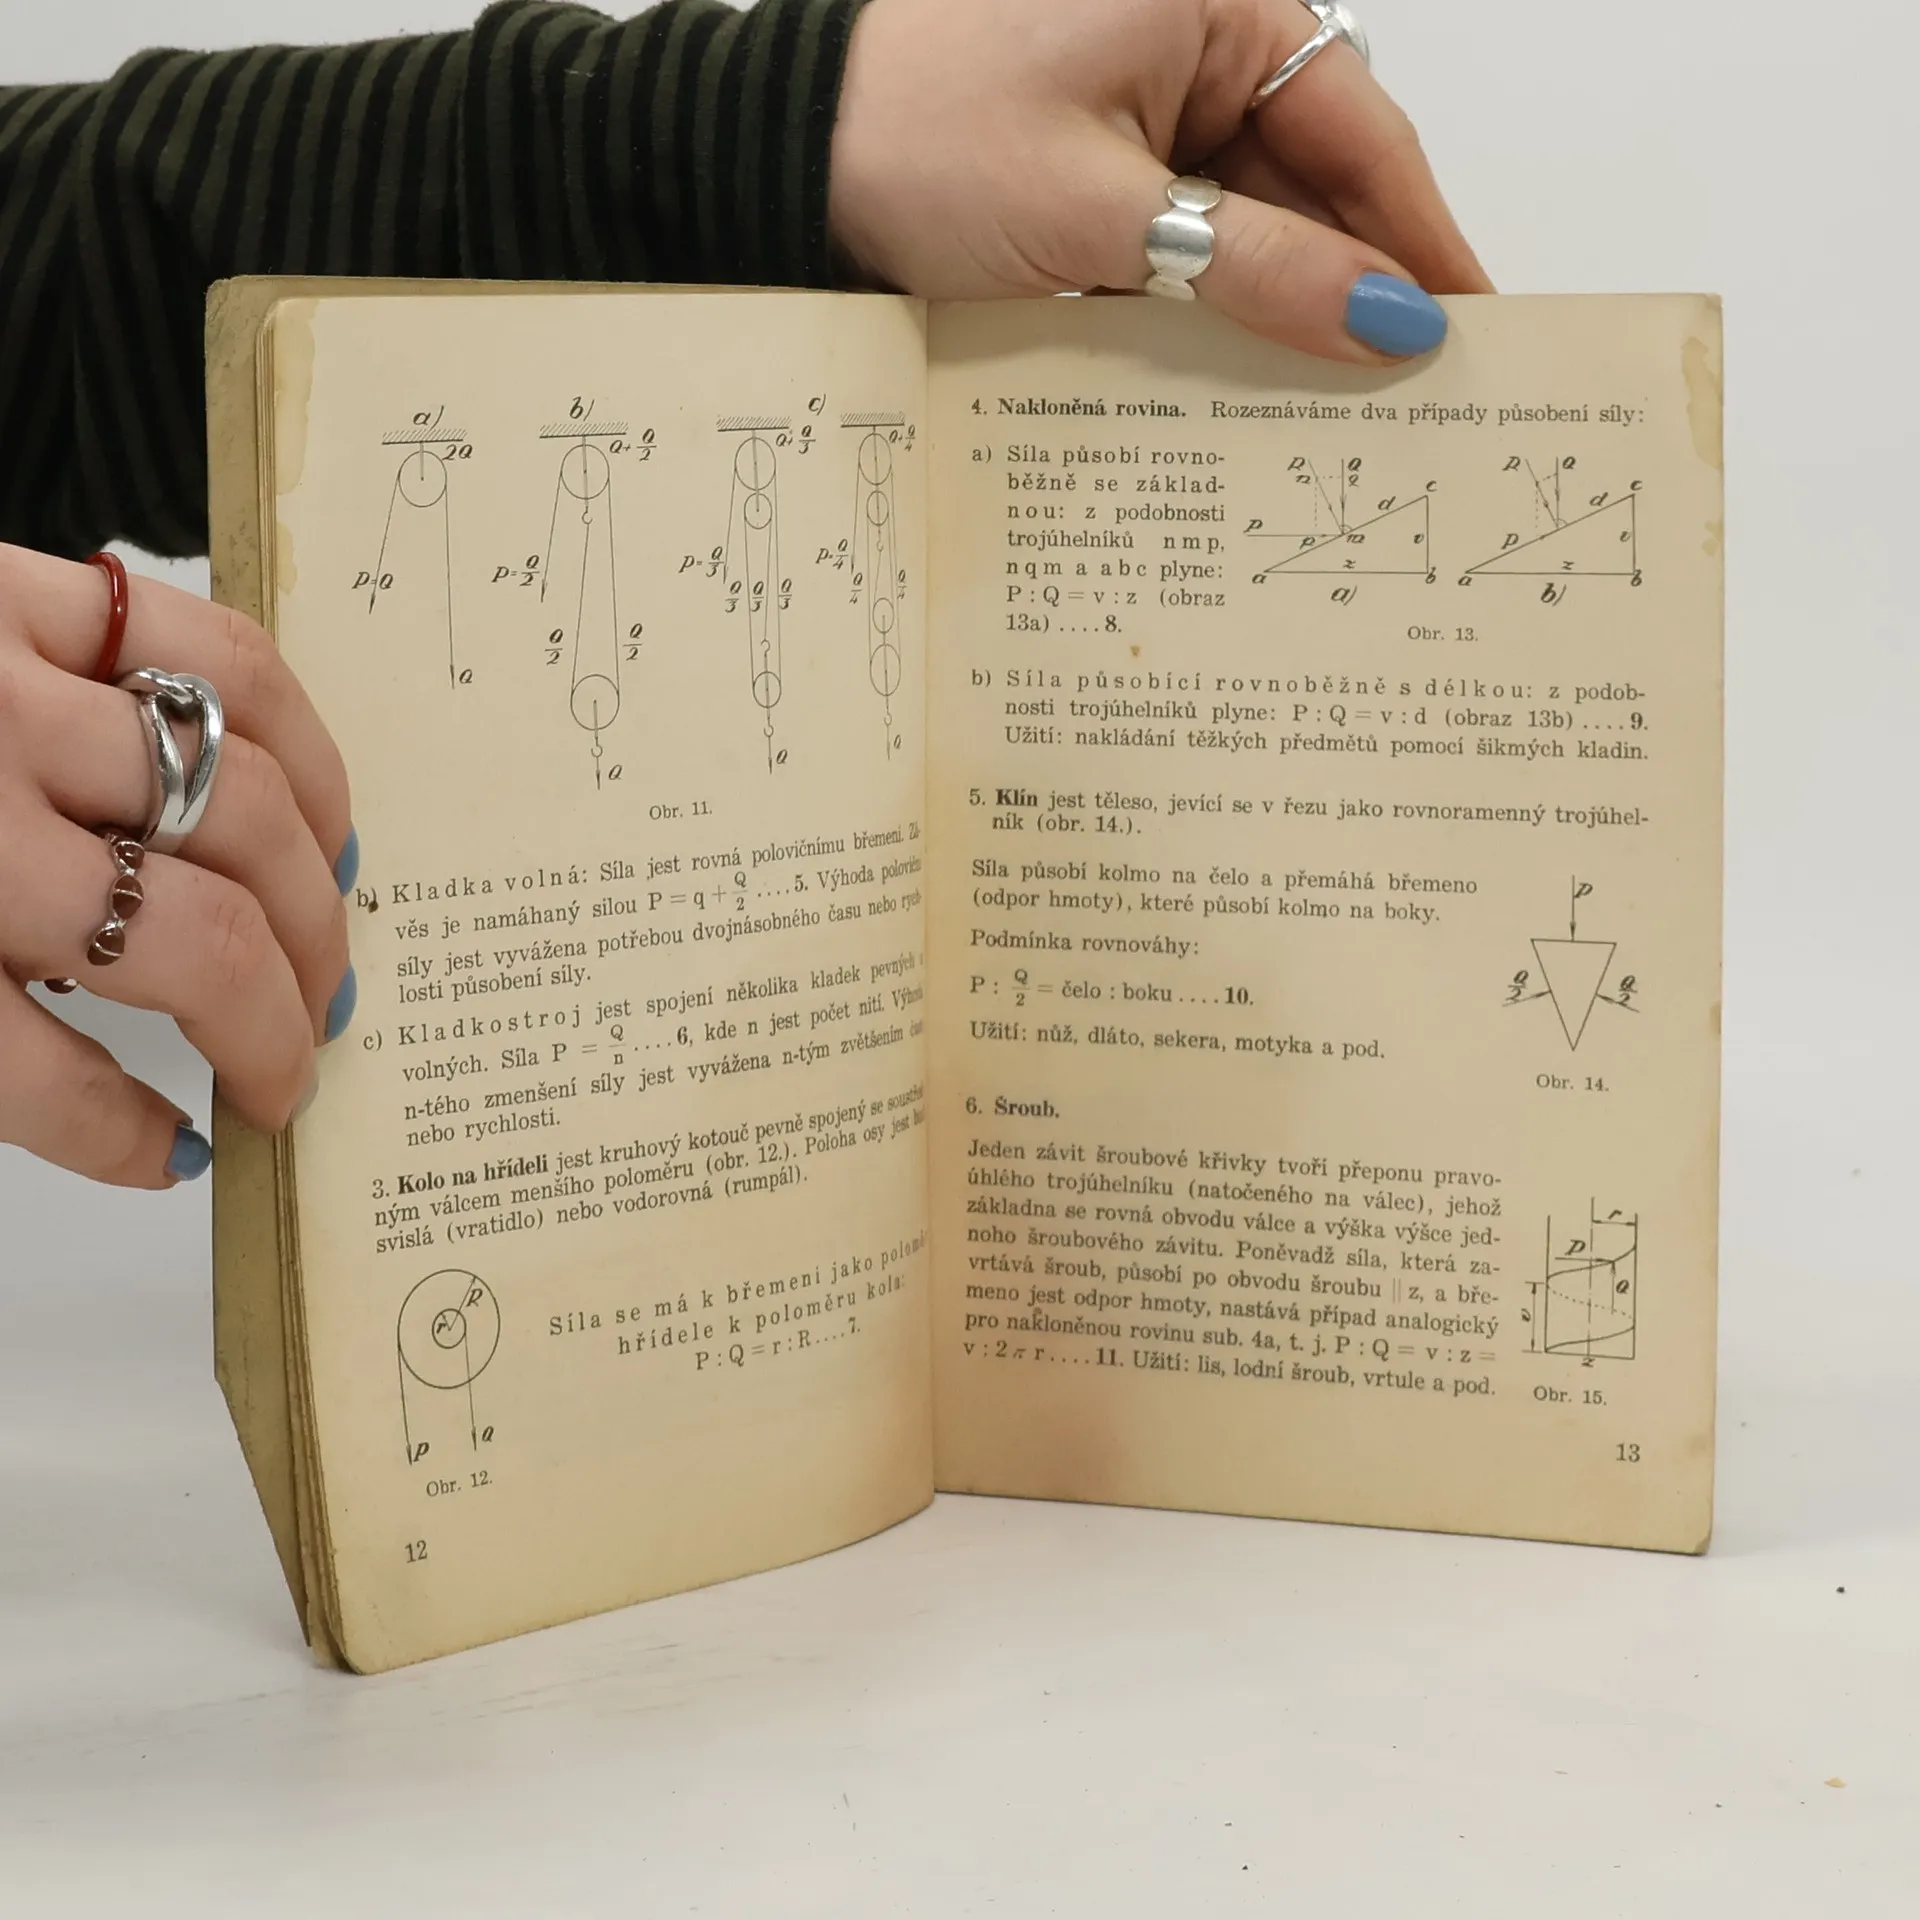 a) b) c)
2Q Q+Q/2 Q+Q/3 Q+Q/4
P=Q P=Q/2 P=Q/3 P=Q/4
Q/2 Q/2 Q/3 Q/3 Q/3 Q/4 Q/4
Q Q Q Q
Obr. 11.
b) Kladka volná: Síla jest rovná polovičnímu břemeni. Zá-
věs je namáhaný silou P = q + Q/2 ....5. Výhoda poloviční
síly jest vyvážena potřebou dvojnásobného času nebo rych-
losti působení síly.
c) Kladkostroj jest spojení několika kladek pevných a
volných. Síla P = Q/n ....6, kde n jest počet nití. Výhoda
n-tého zmenšení síly jest vyvážena n-tým zvětšením
nebo rychlosti.
3. Kolo na hřídeli jest kruhový kotouč pevně spojený se
ným válcem menšího poloměru (obr. 12.). Poloha osy jest
svislá (vratidlo) nebo vodorovná (rumpál).
R
r
Síla se má k břemeni jako
hřídele k poloměru kola:
P : Q = r : R....7.
P Q
Obr. 12.
12
4. Nakloněná rovina. Rozeznáváme dva případy působení síly:
a) Síla působí rovno-
běžně se základ-
nou: z podobnosti
trojúhelníků nmp,
nqm a abc plyne:
P : Q = v : z (obraz
13a) ....8.
R Q d c
n
P p m v
a z b
a)
R Q d c
P v
a z b
b)
Obr. 13.
b) Síla působící rovnoběžně s délkou: z podob-
nosti trojúhelníků plyne: P : Q = v : d (obraz 13b) ....9.
Užití: nakládání těžkých předmětů pomocí šikmých kladin.
5. Klín jest těleso, jevící se v řezu jako rovnoramenný trojúhel-
ník (obr. 14.).
Síla působí kolmo na čelo a přemáhá břemeno
(odpor hmoty), které působí kolmo na boky.
Podmínka rovnováhy:
P : Q/2 = čelo : boku ....10.
Užití: nůž, dláto, sekera, motyka a pod.
P
Q/2 Q/2
Obr. 14.
6. Šroub.
Jeden závit šroubové křivky tvoří přeponu pravo-
úhlého trojúhelníku (natočeného na válec), jehož
základna se rovná obvodu válce a výška výšce jed-
noho šroubového závitu. Poněvadž síla, která za-
vrtává šroub, působí po obvodu šroubu || z, a bře-
meno jest odpor hmoty, nastává případ analogický
pro nakloněnou rovinu sub. 4a, t. j. P : Q = v : z =
v : 2 π r....11. Užití: lis, lodní šroub, vrtule a pod.
r
P
Q
v
z
Obr. 15.
13